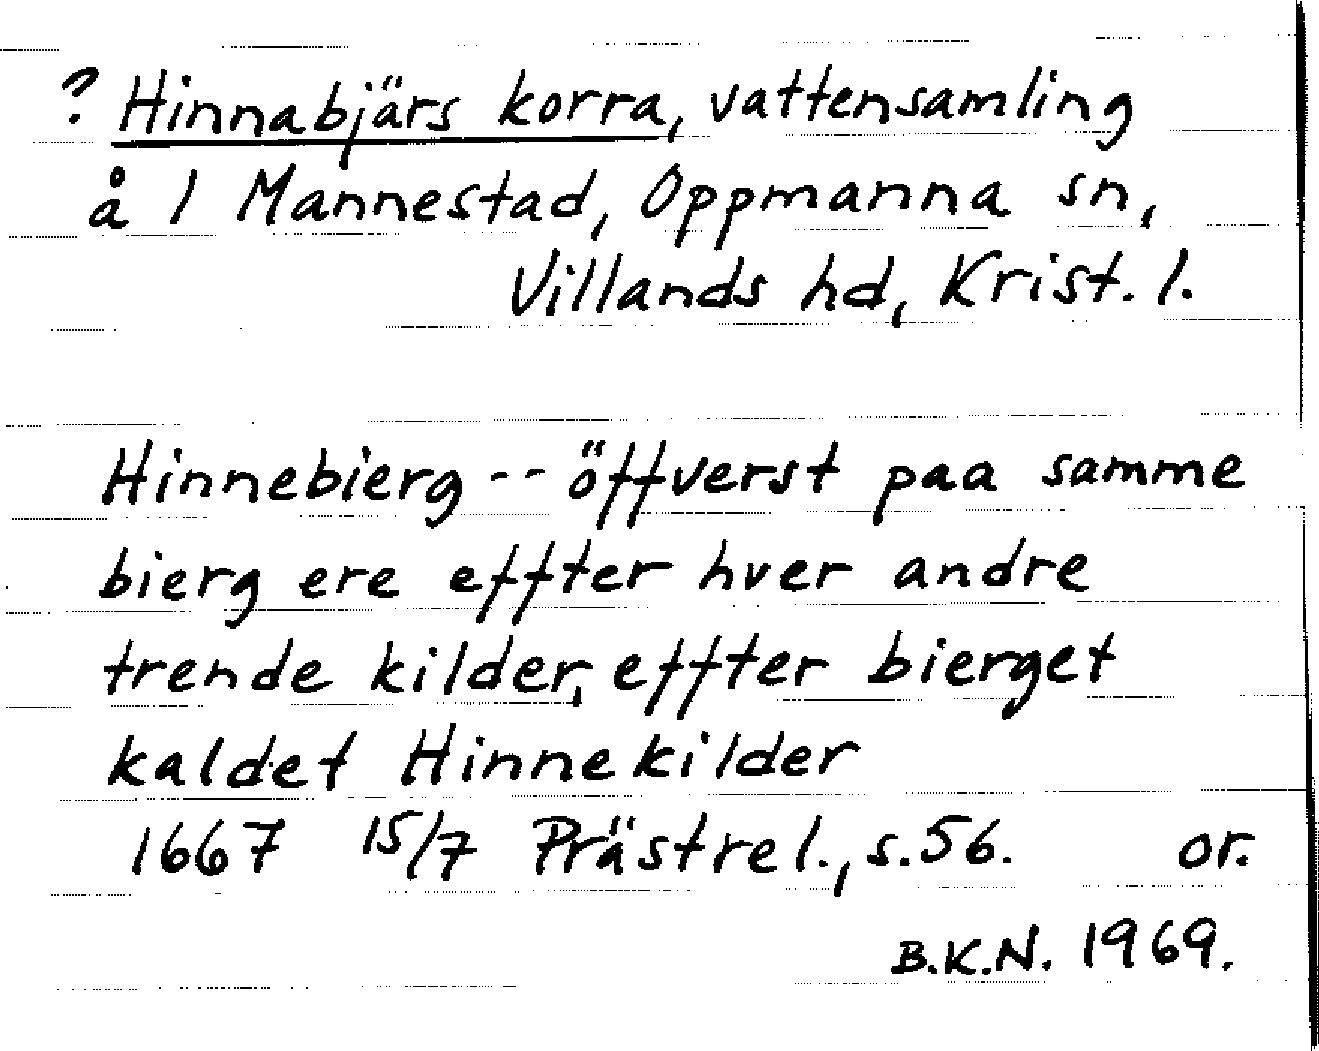 ? Hinnabjärs korra, vattensamling
å 1 Mannestad, Oppmanna sn,
Villands hd, Krist. l.
Hinnebierg -- öffverst paa samme
bierg ere effter hver andre
trende kilder, effter bierget
kaldet Hinnekilder
1667 15/7 Prästrel., s. 56. or.
B.K.N. 1969.